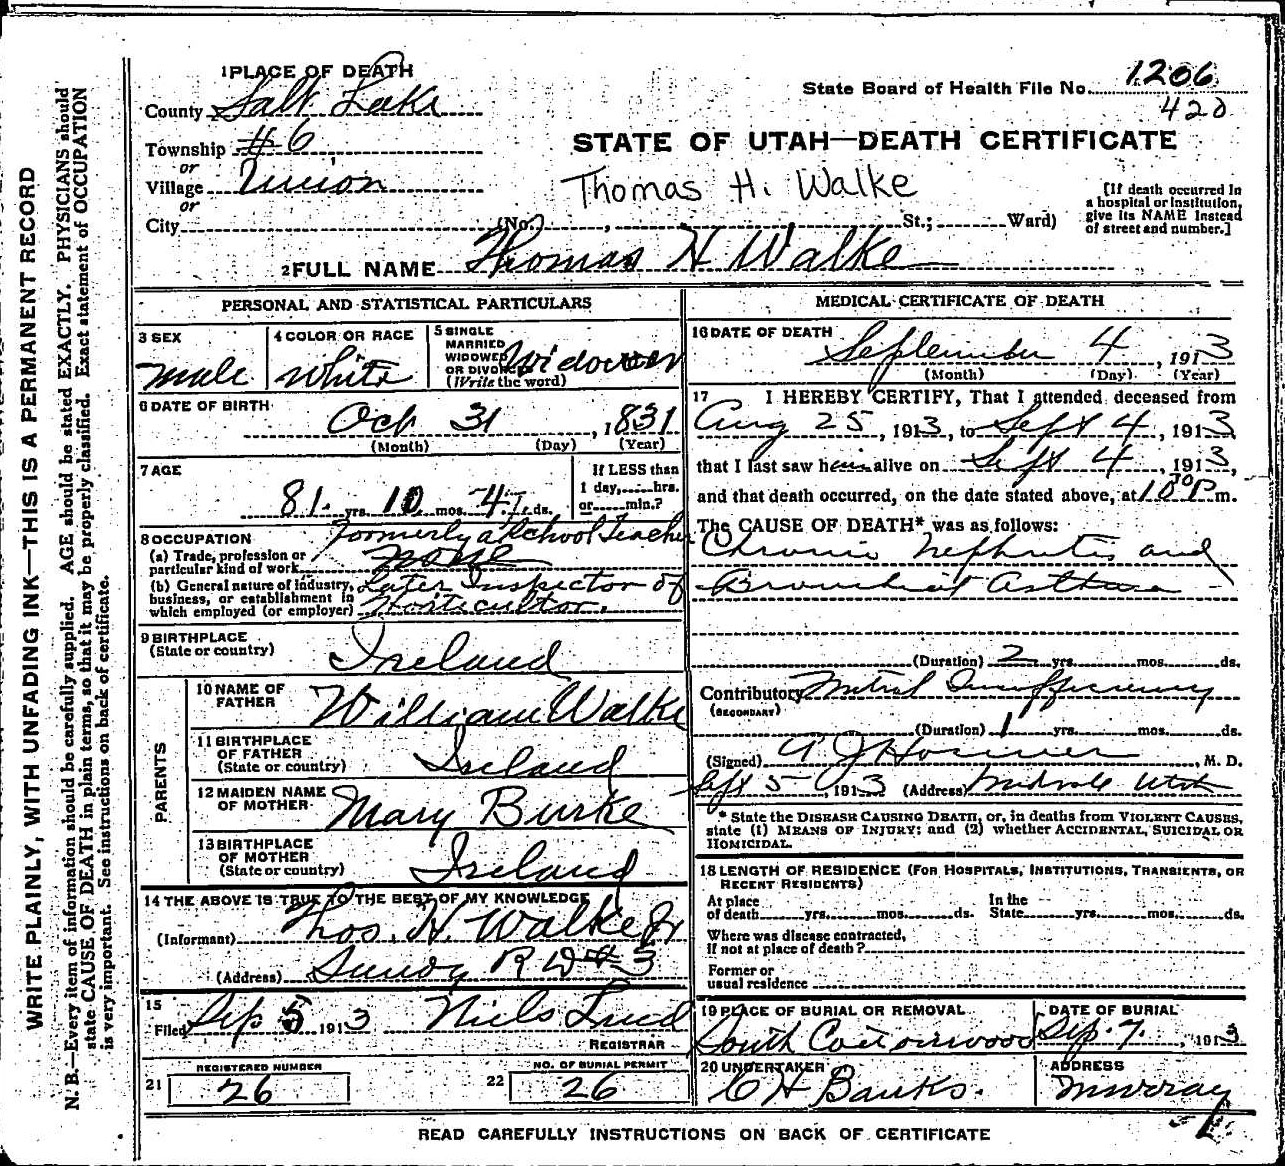 1 PLACE OF DEATH
County Salt Lake
Township #6
or
Village Union
or
City (No. , St.; Ward)
State Board of Health File No. 1206
420
STATE OF UTAH—DEATH CERTIFICATE
Thomas H. Walke
[If death occurred in
a hospital or institution,
give its NAME instead
of street and number.]
2 FULL NAME Thomas H Walke
PERSONAL AND STATISTICAL PARTICULARS
3 SEX
Male
4 COLOR OR RACE
White
5 SINGLE
MARRIED
WIDOWED
OR DIVORCED
(Write the word)
Widower
6 DATE OF BIRTH
Oct 31, 1831
(Month) (Day) (Year)
7 AGE
81 yrs. 10 mos. 4 ds.
If LESS than
1 day, hrs.
or min.?
8 OCCUPATION Formerly a School Teacher
(a) Trade, profession or
particular kind of work None
(b) General nature of industry, Later Inspector of
business, or establishment in
which employed (or employer) Horticultor.
9 BIRTHPLACE
(State or country) Ireland
PARENTS
10 NAME OF
FATHER William Walke
11 BIRTHPLACE
OF FATHER
(State or country) Ireland
12 MAIDEN NAME
OF MOTHER Mary Burke
13 BIRTHPLACE
OF MOTHER
(State or country) Ireland
14 THE ABOVE IS TRUE TO THE BEST OF MY KNOWLEDGE
(Informant) Thos. H. Walke Jr
(Address) Sandy R D #3
15
Filed Sep 5 1913 Niels Lind
REGISTRAR
21 REGISTERED NUMBER
26
22 NO. OF BURIAL PERMIT
26
MEDICAL CERTIFICATE OF DEATH
16 DATE OF DEATH
September 4, 1913
(Month) (Day) (Year)
17 I HEREBY CERTIFY, That I attended deceased from
Aug 25, 1913, to Sept 4, 1913,
that I last saw him alive on Sept 4, 1913,
and that death occurred, on the date stated above, at 10 30 P m.
The CAUSE OF DEATH* was as follows:
Chronic Nephritis and
Bronchial Asthma
(Duration) 2 yrs. mos. ds.
Contributory Mitral Insufficiency
(SECONDARY)
(Duration) 1 yrs. mos. ds.
(Signed) A J Hosmer, M. D.
Sept 5, 1913 (Address) Midvale Utah
* State the DISEASE CAUSING DEATH, or, in deaths from VIOLENT CAUSES,
state (1) MEANS OF INJURY; and (2) whether ACCIDENTAL, SUICIDAL OR
HOMICIDAL.
18 LENGTH OF RESIDENCE (FOR HOSPITALS, INSTITUTIONS, TRANSIENTS, OR
RECENT RESIDENTS)
At place In the
of death yrs. mos. ds. State yrs. mos. ds.
Where was disease contracted,
if not at place of death?
Former or
usual residence
19 PLACE OF BURIAL OR REMOVAL
South Cottonwood
DATE OF BURIAL
Sep. 7, 1913
20 UNDERTAKER
C H Banks.
ADDRESS
Murray
READ CAREFULLY INSTRUCTIONS ON BACK OF CERTIFICATE
WRITE PLAINLY, WITH UNFADING INK—THIS IS A PERMANENT RECORD
N. B.—Every item of information should be carefully supplied. AGE should be stated EXACTLY. PHYSICIANS should
state CAUSE OF DEATH in plain terms, so that it may be properly classified. Exact statement of OCCUPATION
is very important. See instructions on back of certificate.